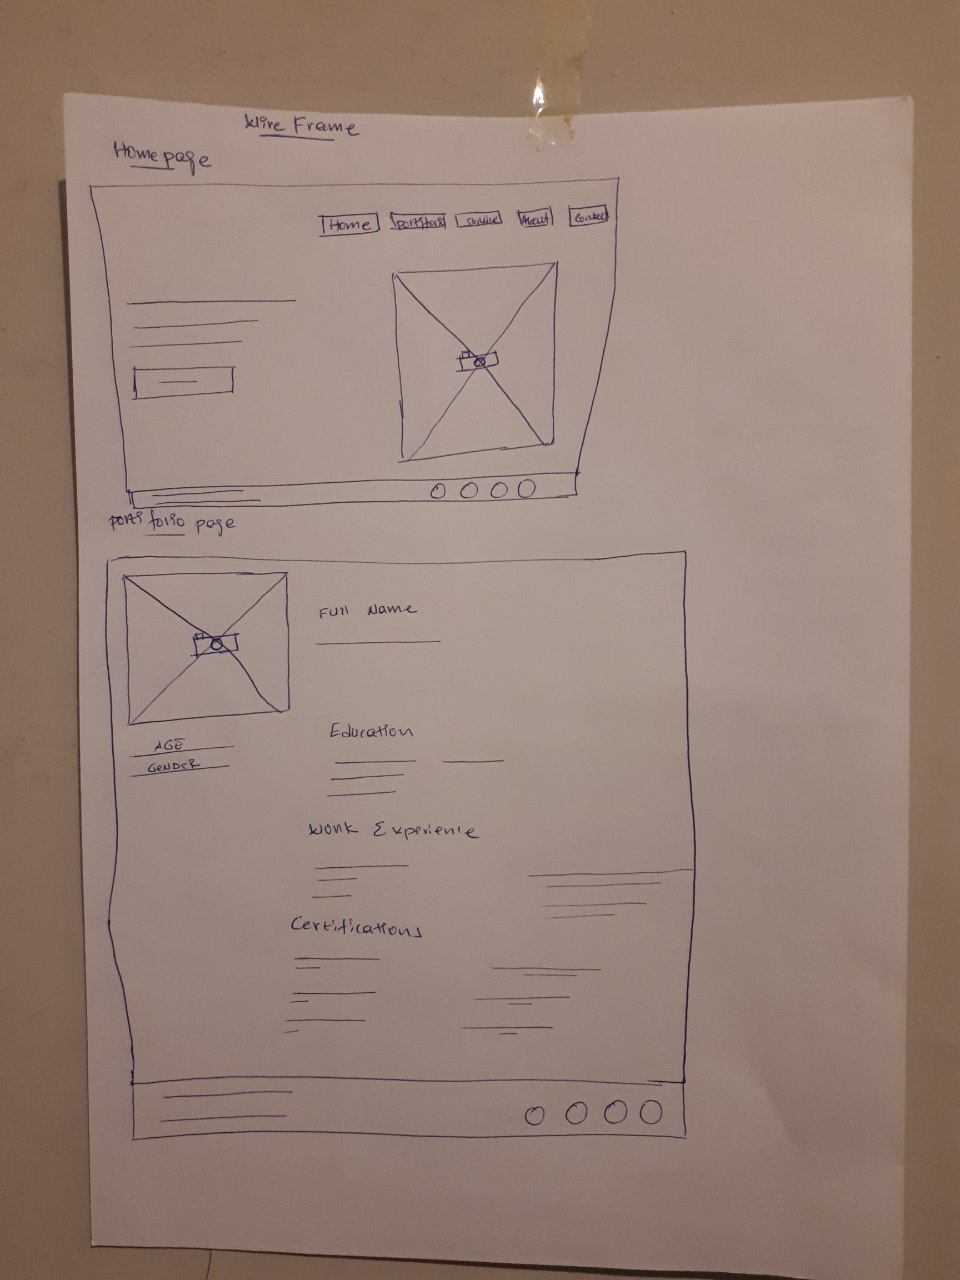 Wire Frame
Home page
Home
Service
About
Contact
page
Full Name
AGE
GENDER
Education
Work Experience
Certifications